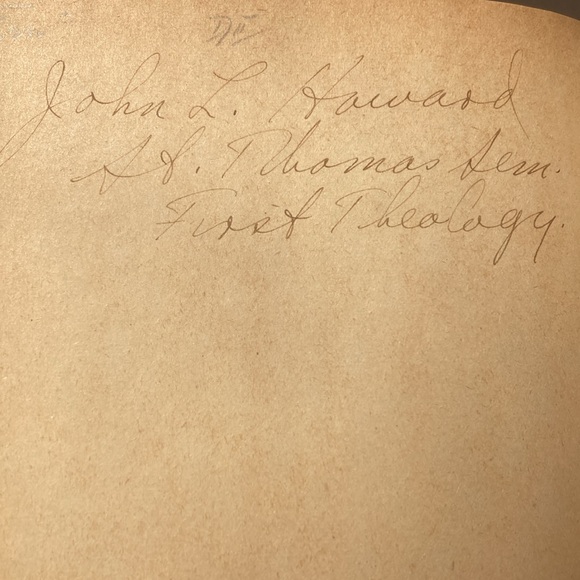 John L. Howard
St. Thomas Sem.
First Theology.